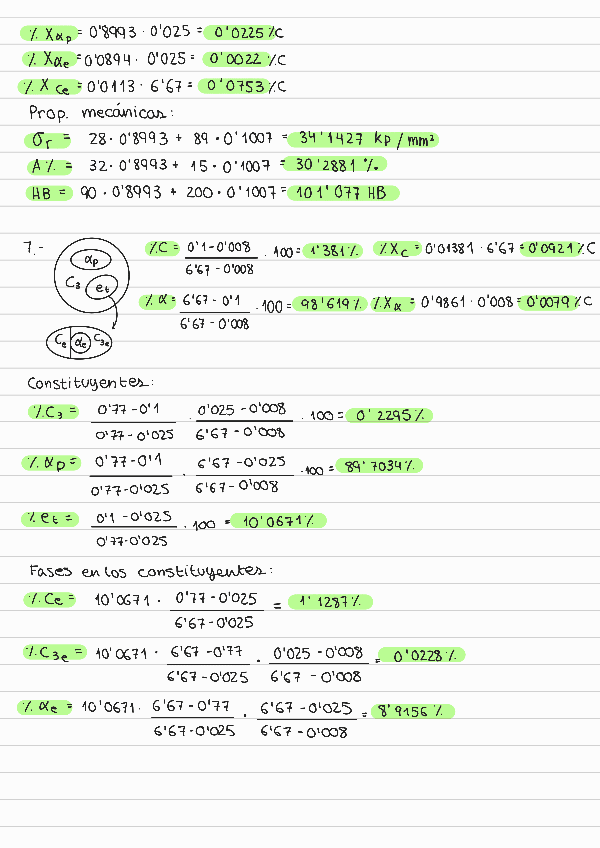 % Xαp = 0'8993 · 0'025 = 0'0225 %C
% Xαe = 0'0894 · 0'025 = 0'0022 %C
% X Ce = 0'0113 · 6'67 = 0'0753 %C
Prop. mecánicas:
σr = 28 · 0'8993 + 89 · 0'1007 = 34'1427 Kp/mm²
A% = 32 · 0'8993 + 15 · 0'1007 = 30'2881 %
HB = 90 · 0'8993 + 200 · 0'1007 = 101'077 HB
7.- αp C3 et Ce αe C3e
%C = (0'1 - 0'008)/(6'67 - 0'008) · 100 = 1'381% %XC = 0'01381 · 6'67 = 0'0921 %C
% α = (6'67 - 0'1)/(6'67 - 0'008) · 100 = 98'619% %Xα = 0'9861 · 0'008 = 0'0079 %C
Constituyentes:
%C3 = (0'77 - 0'1)/(0'77 - 0'025) · (0'025 - 0'008)/(6'67 - 0'008) · 100 = 0'2295%
%αp = (0'77 - 0'1)/(0'77 - 0'025) · (6'67 - 0'025)/(6'67 - 0'008) · 100 = 89'7034%
%et = (0'1 - 0'025)/(0'77 - 0'025) · 100 = 10'0671%
Fases en los constituyentes:
%Ce = 10'0671 · (0'77 - 0'025)/(6'67 - 0'025) = 1'1287%
%C3e = 10'0671 · (6'67 - 0'77)/(6'67 - 0'025) · (0'025 - 0'008)/(6'67 - 0'008) = 0'0228%
% αe = 10'0671 · (6'67 - 0'77)/(6'67 - 0'025) · (6'67 - 0'025)/(6'67 - 0'008) = 8'9156%